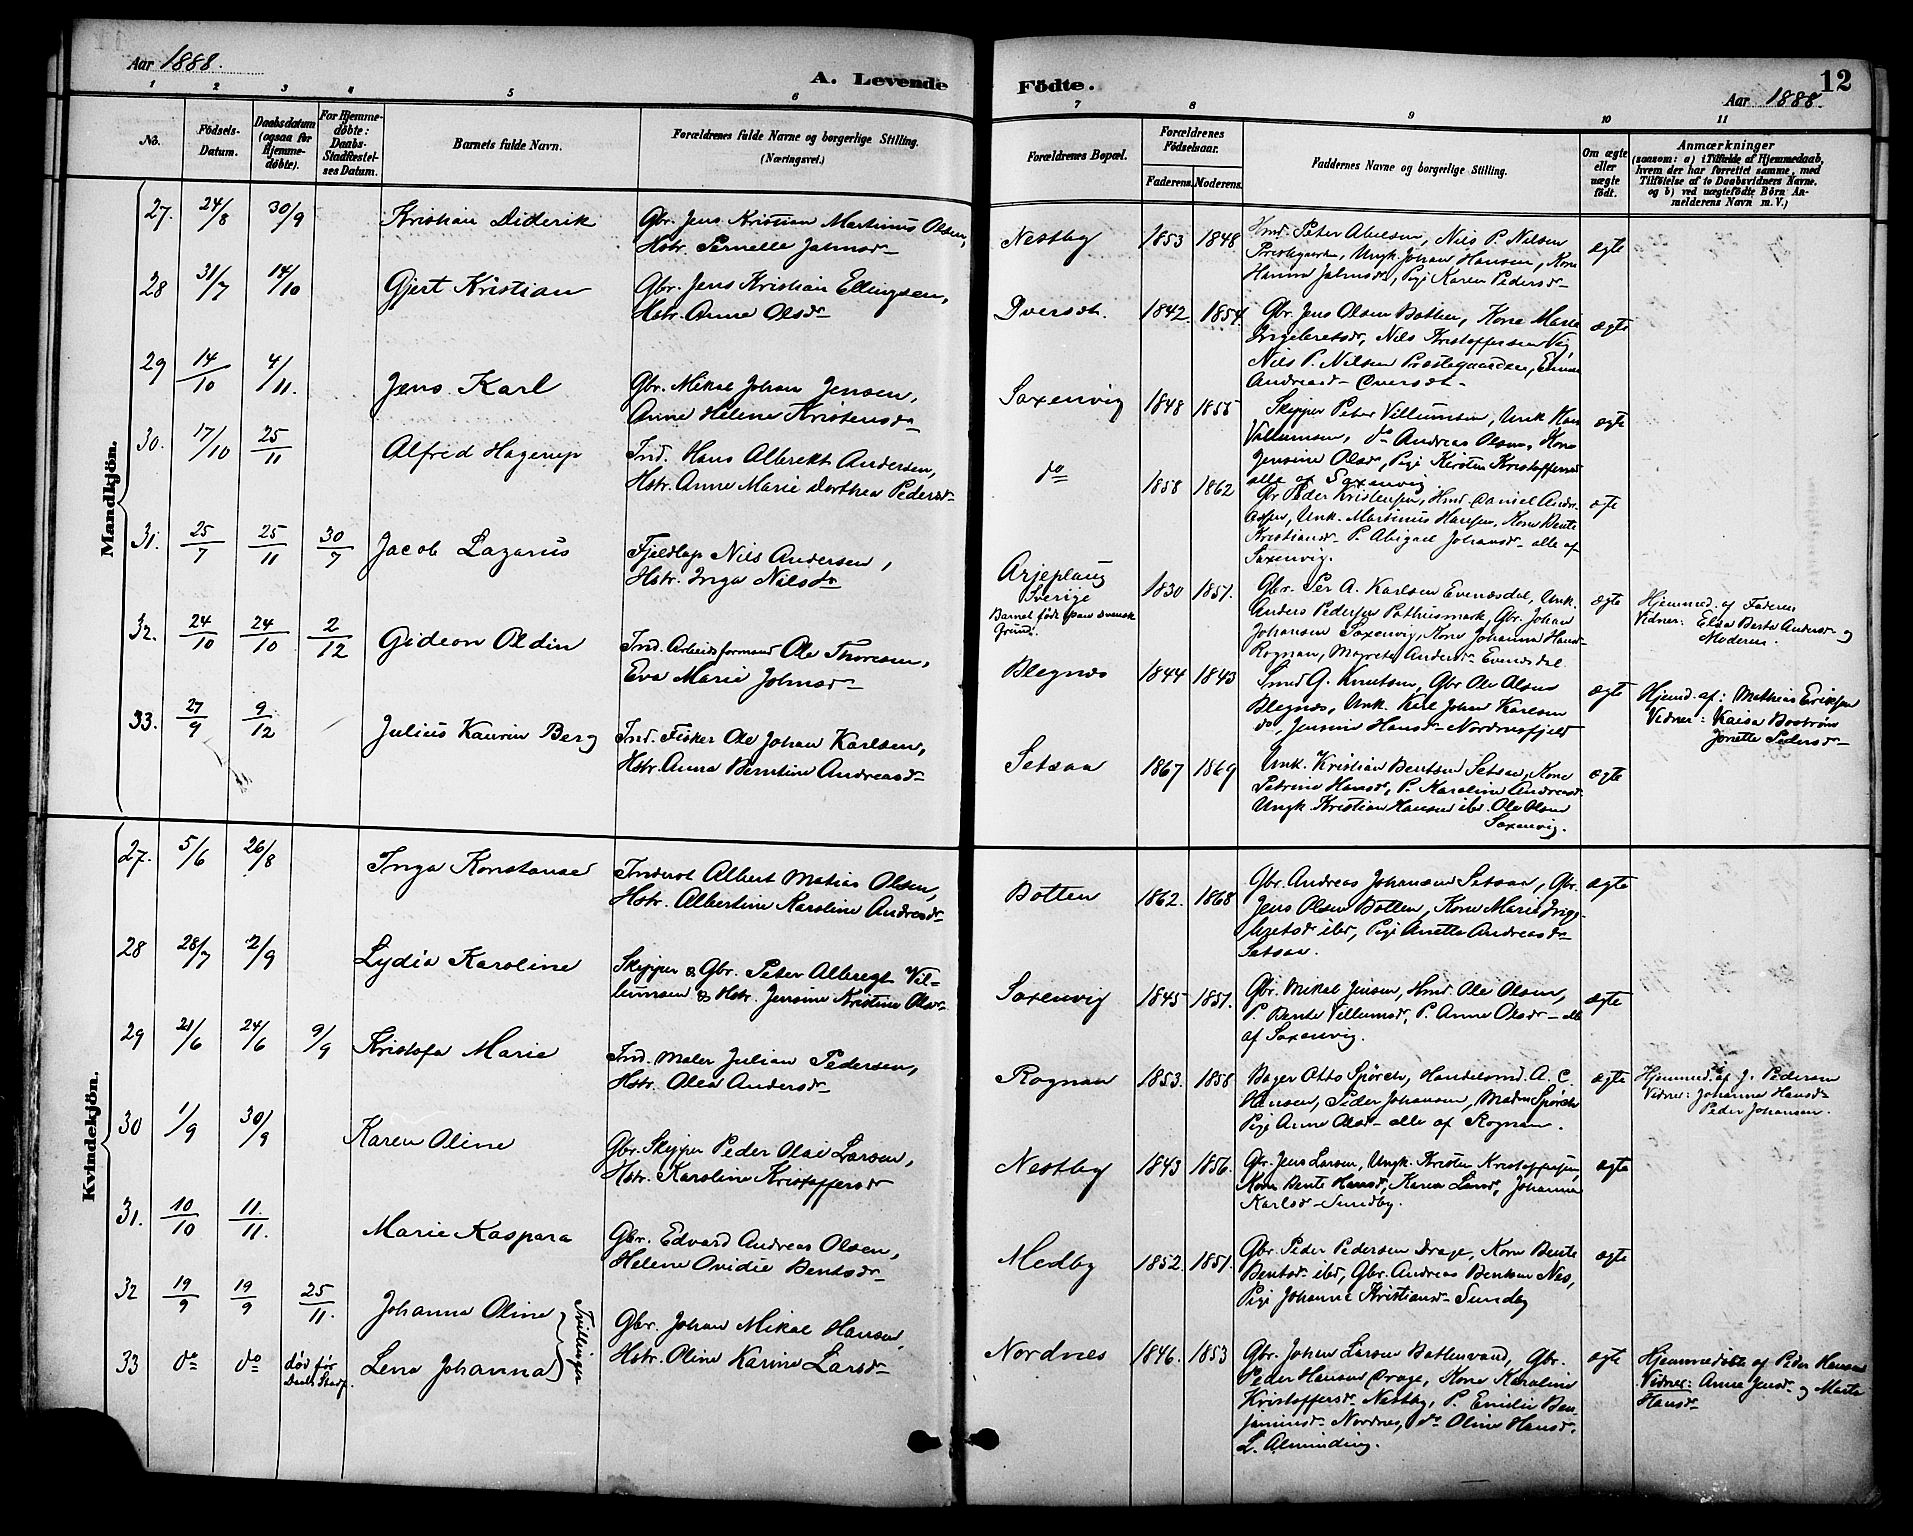 Aar 1888.
A. Levende
1 2 3 4 5 6
No.
Födsels-
Datum.
Daabsdatum
(ogsaa for
Hjemme-
döbte).
For Hjemme-
döbte:
Daabs-
Stadfæstel-
ses Datum.
Barnets fulde Navn.
Forældrenes fulde Navne og borgerlige Stilling.
(Næringsvei.)
Mandkjön.
27. 24/8 30/9 Kristian Diderik Gbr. Jens Kristian Martinus Olsen,
Hstr. Pernelle Jakobsd
28 31/7 14/10 Gjert Kristian Gbr. Jens Kristian Ellingsen,
Hstr. Anne Olsdr
29 14/10 4/11. Jens Karl Gbr. Mikal Johan Jensen,
Anne Helene Kristensdr
30. 17/10 25/11 Alfred Hagerup Ind. Hans Albrekt Andersen,
Hstr. Anne Marie Dorthea Pedersd
31. 25/7 25/11 30/7 Jacob Lazarus Fjeldlap Nils Andersen,
Hstr. Inga Nilsdr
32. 24/10 24/10 2/12 Gideon Oldin Ind. Arbeidsformand Ole Thoresen,
Eva Marie Johnsd
33. 27/9 9/12 Julius Kaurin Berg Ind. Fisker Ole Johan Karlsen,
Hstr. Anna Berntine Andreasd
Kvindekjön.
27. 5/6 26/8 Inga Konstanse Inderst Albert Matias Olsen,
Hstr. Albertine Karoline Andreasdr
28 28/7 2/9 Lydia Karoline Skipper & Gbr. Peter Albregt Vil-
lumsen & Hstr. Jensine Kristine Olsdr
29 21/6 24/6 9/9 Kristofa Marie Ind. Maler Julian Pedersen,
Hstr. Olea Andersdr
30 1/9 30/9 Karen Oline Gbr. Skipper Peder Olai Larsen,
Hstr. Karoline Kristoffersdr
31. 10/10 11/11. Marie Kaspara Gbr. Edvard Andreas Olsen,
Helene Ovidie Bentsdr
32 19/9 19/9 25/11. Johanna Oline Tvillinger Gbr. Johan Mikal Hansen,
33 do do död för
Daabs Stadf. Lena Johanna Hstr. Oline Karine Larsdr
Födte.
12
Aar 1888.
7 8 9 10 11
Forældrenes Bopæl.
Forældrenes
Födselsaar.
Faderens. Moderens.
Faddernes Navne og borgerlige Stilling.
Om ægte
eller
uægte
födt.
Anmærkninger
(saasom: a) i Tilfælde af Hjemmedaab,
hvem der har forrettet samme, med
Tilföielse af to Daabsvidners Navne,
og b) ved uægtefödte Börn An-
melderens Navn m. V.)
Nestby 1853 1848 Hmd. Peter Abelsen, Nils P. Nilsen ægte
Prestegaarden, Ungk. Johan Hansen, Kone
Hanna , Pige Karen Pedersd
Dverset. 1842. 1854. Gbr. Jens Olsen Botten, Kone Marie ægte
Ingebretsdr, Nils Kristoffersen Vig,
Nils P. Nilsen Præstegaarden,
Andreasd Dverset.
Saxenvig 1848 1855 Skipper Peter Villumsen, Unk Hans ægte
Villumsen, do Andreas Olsen, Kone
Jensine Olsdr, Pige Kirsten Kristoffersd
alle af Saxenvig
do 1858 1862 Gbr Peder Kristensen, Hmd. Daniel Andre- ægte
assen, Unk. Martinus Hansen, Kone Bente
Kristiansd P. Abigael Johansd alle af
Saxenvig.
Arjeplaug
Sverige
Barnet födt paa svensk
Grund. 1830 1851. Gbr. Per A. Karlsen Evenesdal, Unk. ægte Hjemmed. af Faderen
Anders Pedersen , Gbr. Johan Vidner: Elsa Berta Andersd og
Johansen Saxenvig, Kone Johanna Hansd Moderen.
Rognan, Magrete Andersd Evenesdal.
Blegnæs 1844 1843 Smed G. Knutsen, Gbr Ole Olsen ægte Hjemd. af: Mathias Eriksen
Blegnæs, Unk. Karl Johan Karlsen Vidner: Kaisa Boström
do, Jensine Hansd Nordnesfjeld Jonette Pedersd
Setsaa 1867 1869 Unk. Kristian Bentsen Setsaa, Kone ægte
Petrine Hansd, P. Karoline Andreasd
Ungk. Kristian Hansen ibd. Ole Olsen
Saxenvig.
Botten 1862. 1868 Gbr. Andreas Johansen Setsaa, Gbr. ægte
Jens Olsen Botten, Kone Marie Inge-
bretsd ibd, Pige Anetta Andreasdr
Setsaa.
Saxenvig 1845 1851. Gbr. Mikal Jensen, Hmd. Ole Olsen, ægte
P. Bente Villumsd, P. Anne Olsdr alle
af Saxenvig.
Rognan 1853. 1858 Bager Otto Spörck, Handelsmd. A. C. ægte Hjemmed. af J. Pedersen
Hansen, Peder Johansen, Madm Spörck Vidner: Johanna Hansdr
Pige Anne Olsdr alle af Rognan. Peder Johansen.
Nestby 1843 1856. Gbr. Jens Larsen, Ungk. Kristen Kristoffersen, ægte
Kone Bente Hansd, Karen Larsd, Johanna
Karlsd Sundby.
Medby 1852. 1851. Gbr. Peder Pedersen Drage, Kone Bente ægte
Bentsd ibd, Gbr. Andreas Bentsen Nes,
Pige Johanne Kristiansd Sundby
Nordnes 1846. 1853 Gbr. Johan Larsen Bottenvand, Gbr. ægte Hjemmedöbte af Peder Hansen
Peder Hansen Drage, Kone Karoline Vidner: Anne Jensd og Marta
Kristoffersd Nestby, P. Emilie Ben- Hansd
jaminsd Nordnes, do Oline Hansd,
L. Alminding.